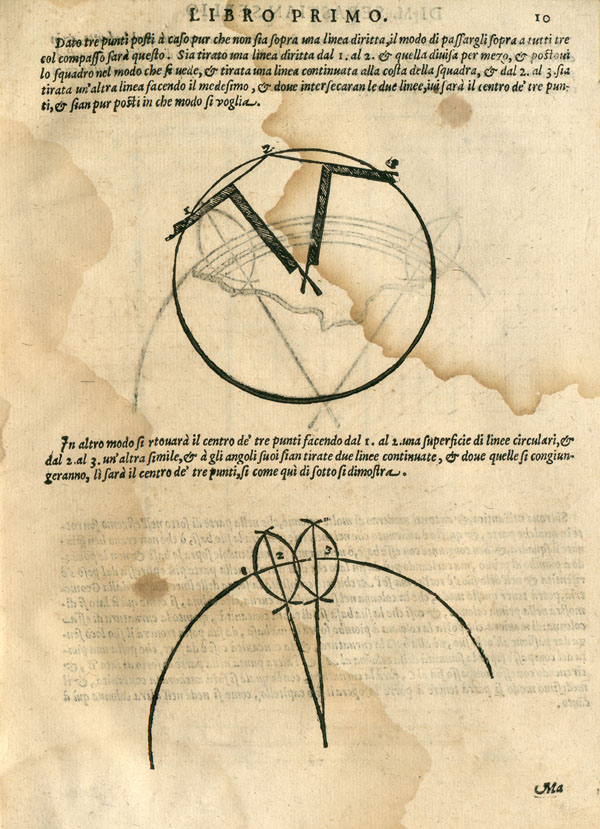 LIBRO PRIMO. 10
Dato tre punti posti à caso pur che non sia sopra una linea diritta, il modo di passargli sopra a tutti tre
col compasso sarà questo. Sia tirato una linea diritta dal 1. al 2. & quella diuisa per mezo, & postoui
lo squadro nel modo che si uede, & tirata una linea continuata alla costa della squadra, & dal 2. al 3. sia
tirata un'altra linea facendo il medesimo, & doue intersecaran le due linee, iui sarà il centro de' tre pun-
ti, & sian pur posti in che modo si voglia.
2
3
1
In altro modo si rtouarà il centro de' tre punti facendo dal 1. al 2. una superficie di linee circulari, &
dal 2. al 3. un'altra simile, & à gli angoli suoi sian tirate due linee continuate, & doue quelle si congiun-
geranno, lì sarà il centro de' tre punti, si come quì di sotto si dimostra.
2
3
Ma